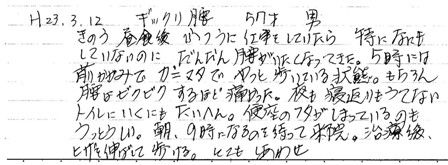 H23.3.12 ギックリ腰 57才 男
きのう昼食後ふつうに仕事をしていたら 特になにも
していないのに だんだん腰がいたくなってきた。5時には
前かがみで ガニマタで やっと歩いている状態。もちろん
腰はビクビクするほど痛かった。夜も寝返りもうてない
トイレにいくにもたいへん。便座のフタがしまっているのも
うっとうしい。朝、9時になるのを待って来院。治療後、
と腰を伸ばして歩ける。とても しあわせ